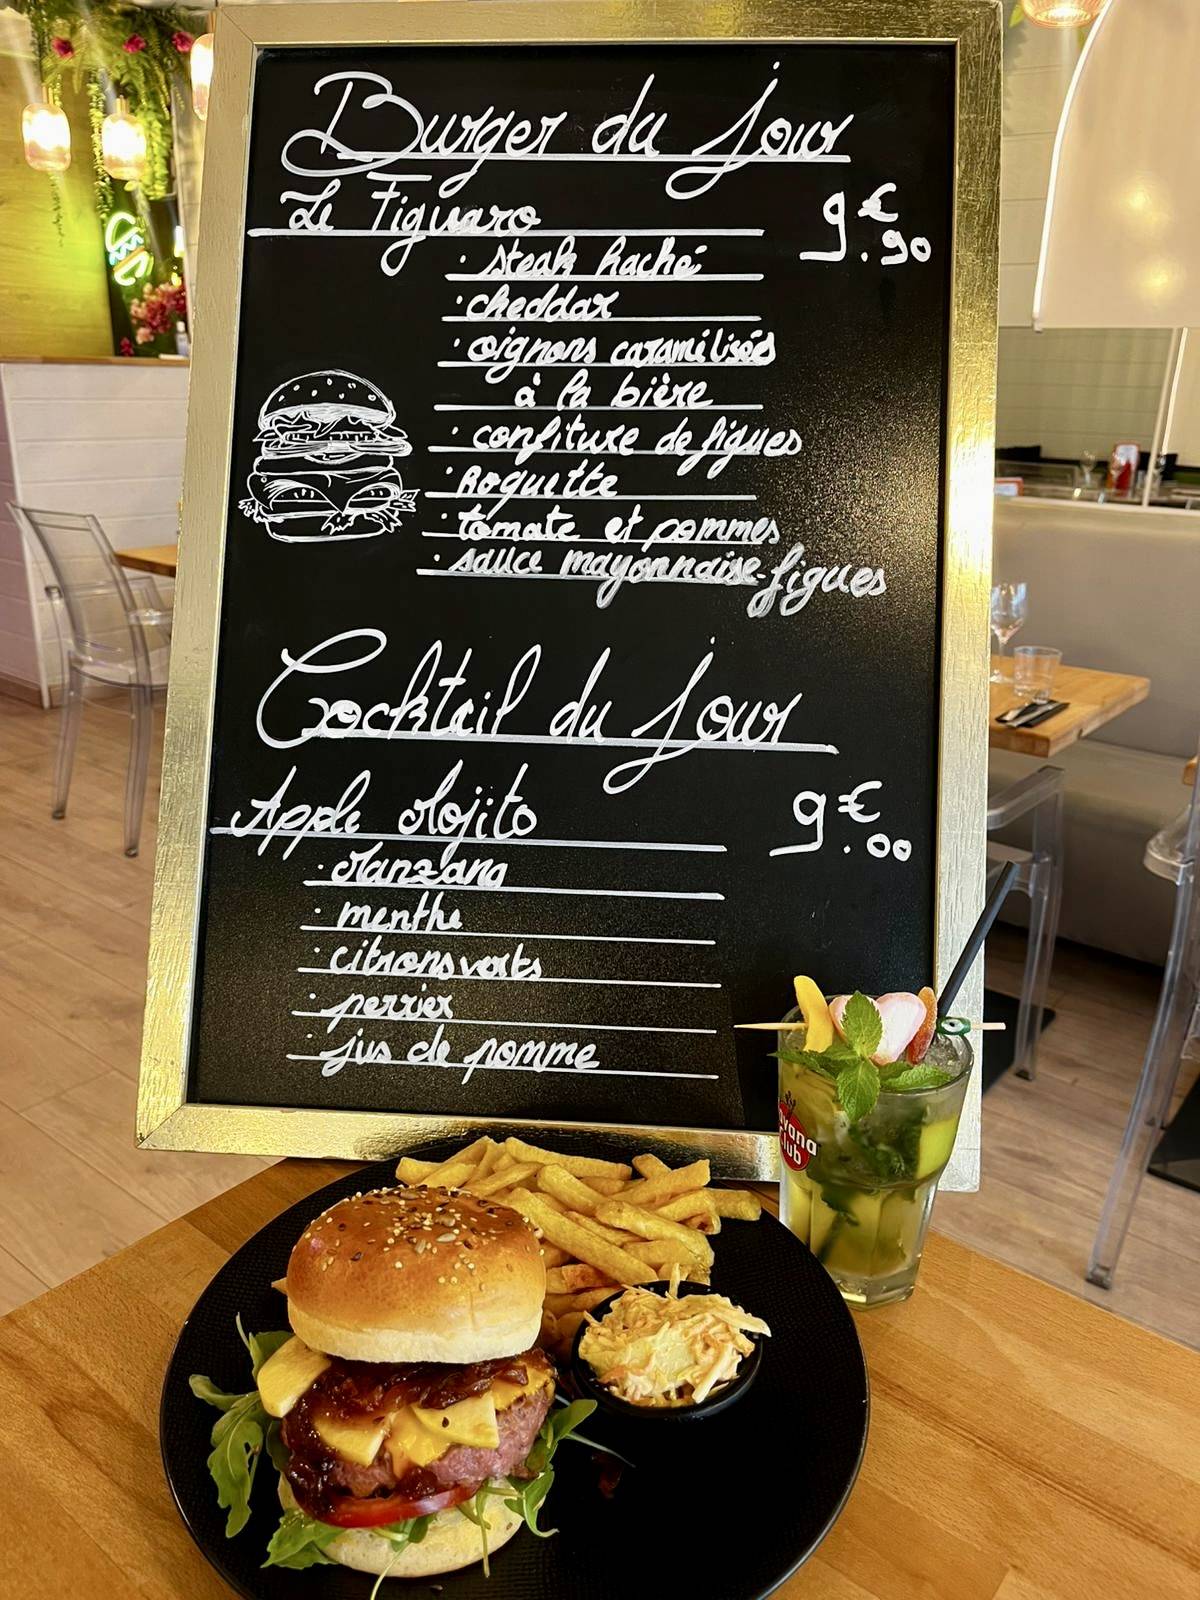 Burger du Jour
Le Figuaro 9€.90
· steak haché
· cheddar
· oignons caramélisés
à la bière
· confiture de figues
· Roquette
· tomate et pommes
· sauce mayonnaise-figues
Cocktail du Jour
Apple Mojito 9€.00
· Manzana
· menthe
· citrons verts
· perrier
· jus de pomme
Havana
Club